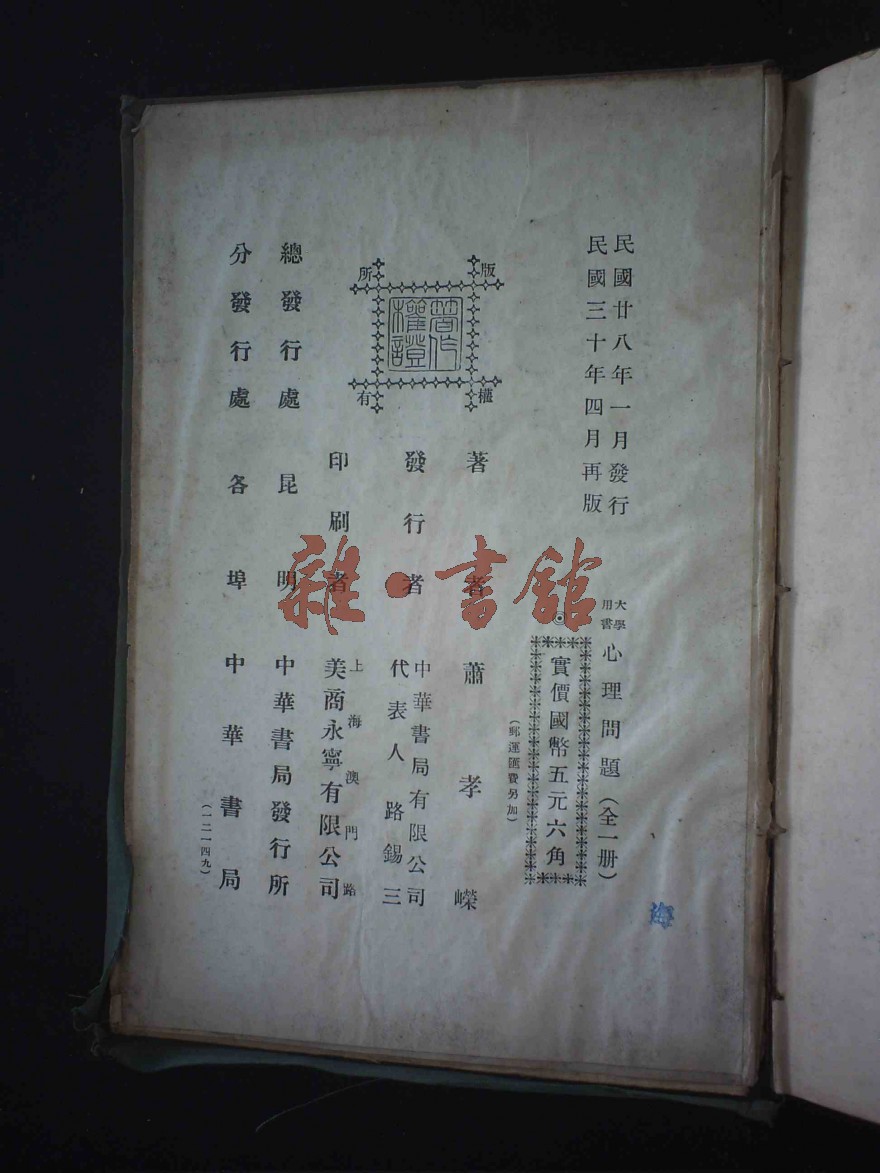 民國廿八年一月發行
民國三十年四月再版
大學用書
心理問題（全一册）
◎
實價國幣五元六角
（郵運匯費另加）
版權所有
著作權證
著者 蕭孝嶸
發行者 中華書局有限公司
代表人 路錫三
印刷者 上海澳門路
美商永寧有限公司
總發行處 昆明 中華書局發行所
分發行處 各埠 中華書局
（一二一四九）
海
雜·書館